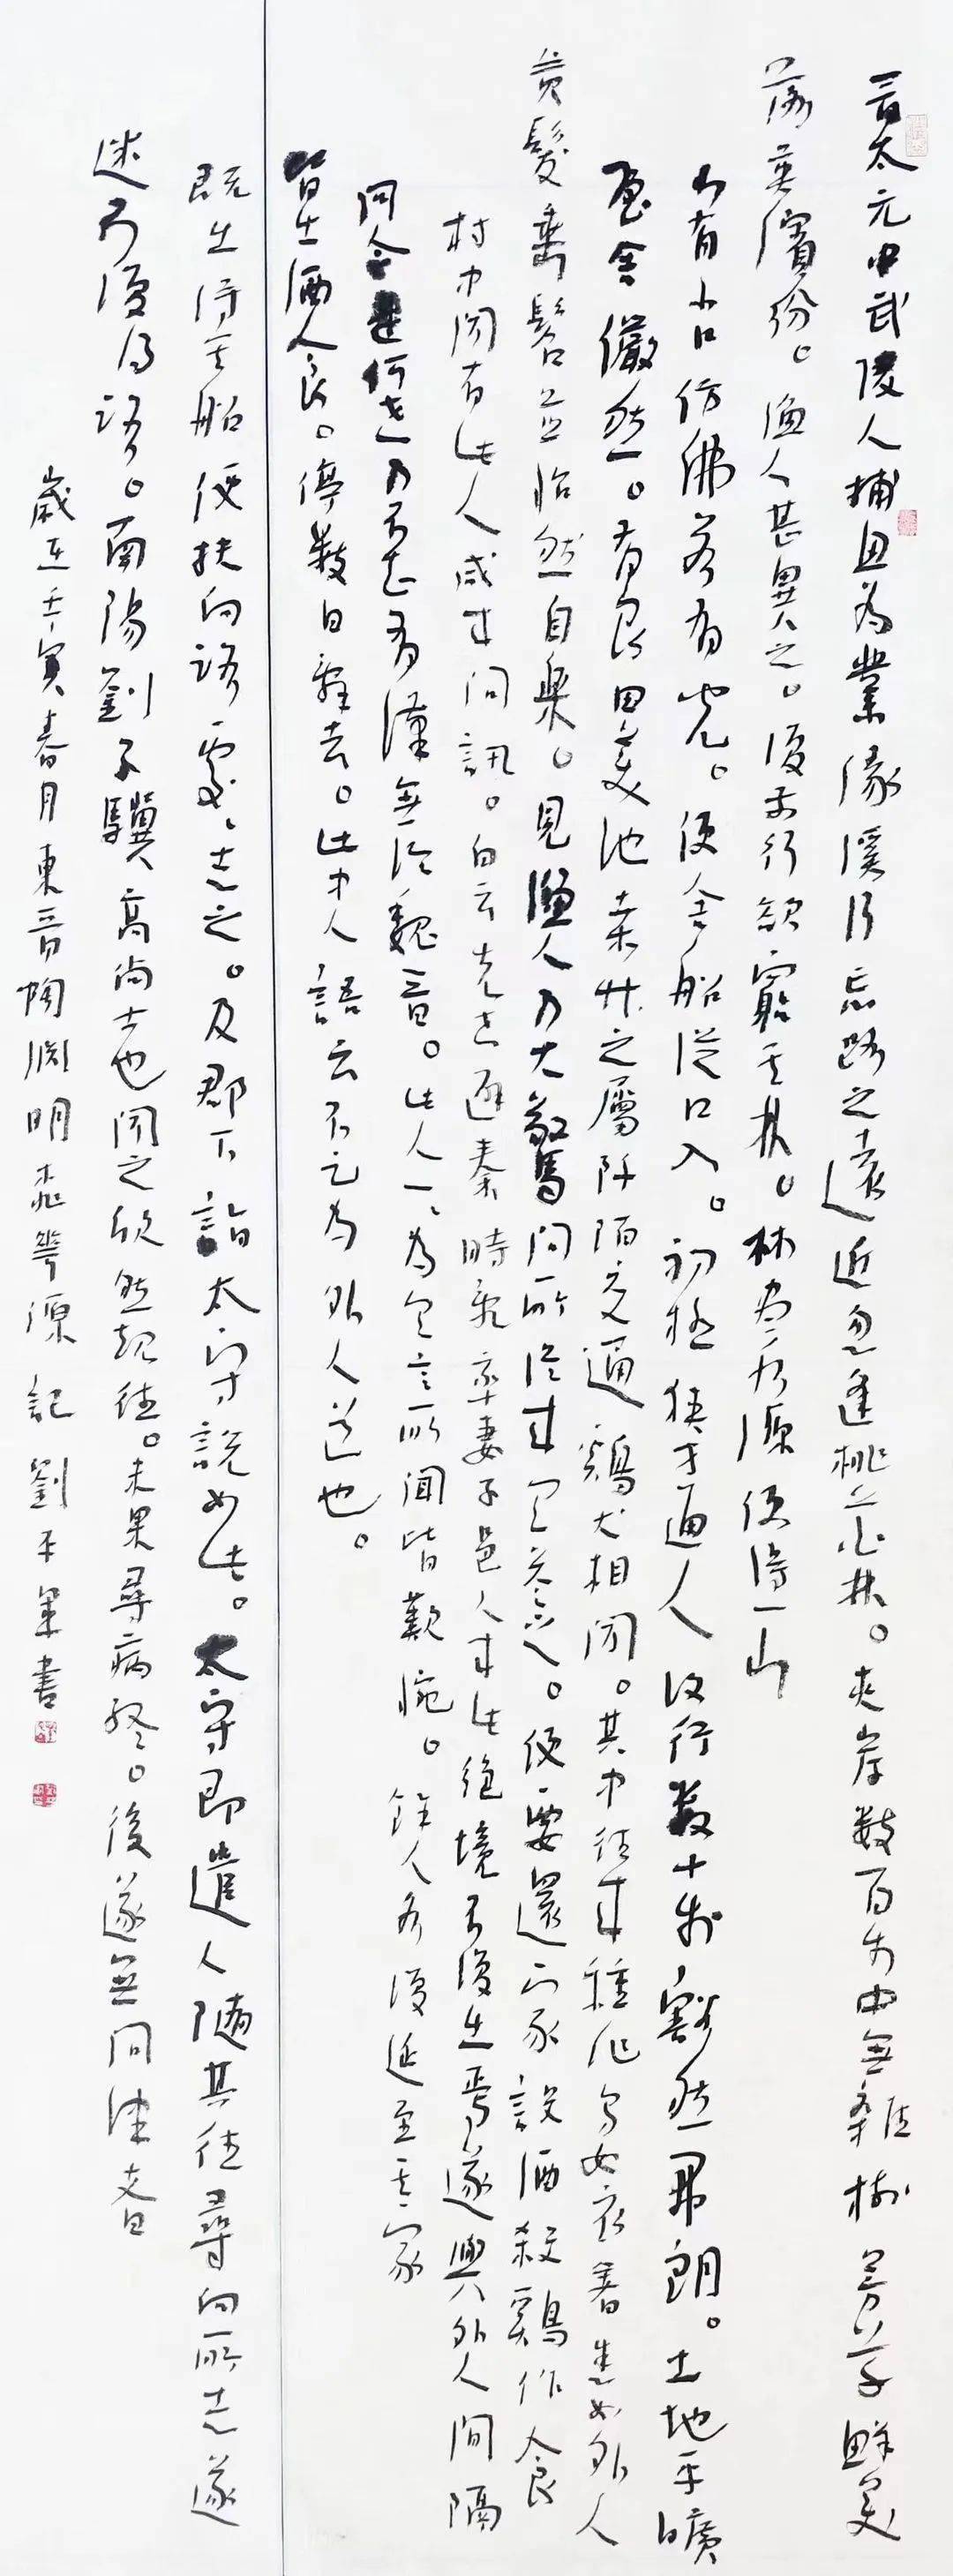 晉太元中武陵人捕魚為業緣溪行忘路之遠近忽逢桃花林。夾岸數百步中無雜樹芳草鮮美
落英繽紛。漁人甚異之。復前行欲窮其林。林盡水源便得一山
山有小口仿佛若有光。便舍船從口入。初極狹才通人復行數十步豁然開朗。土地平曠
屋舍儼然。有良田美池桑竹之屬阡陌交通鷄犬相聞。其中往來種作男女衣著悉如外人
黃髮垂髫並怡然自樂。見漁人乃大驚問所從來具答之。便要還家設酒殺鷄作食
村中聞有此人咸來問訊。自云先世避秦時亂率妻子邑人來此絕境不復出焉遂與外人間隔
問今是何世乃不知有漢無論魏晉。此人一一為具言所聞皆歎惋。餘人各復延至其家
皆出酒食。停數日辭去。此中人語云不足為外人道也。
既出得其船便扶向路處處志之。及郡下詣太守說如此。太守即遣人隨其往尋向所志遂
迷不復得路。南陽劉子驥高尚士也聞之欣然規往。未果尋病終。後遂無問津者
歲在壬寅春月東晉陶淵明桃花源記劉平書